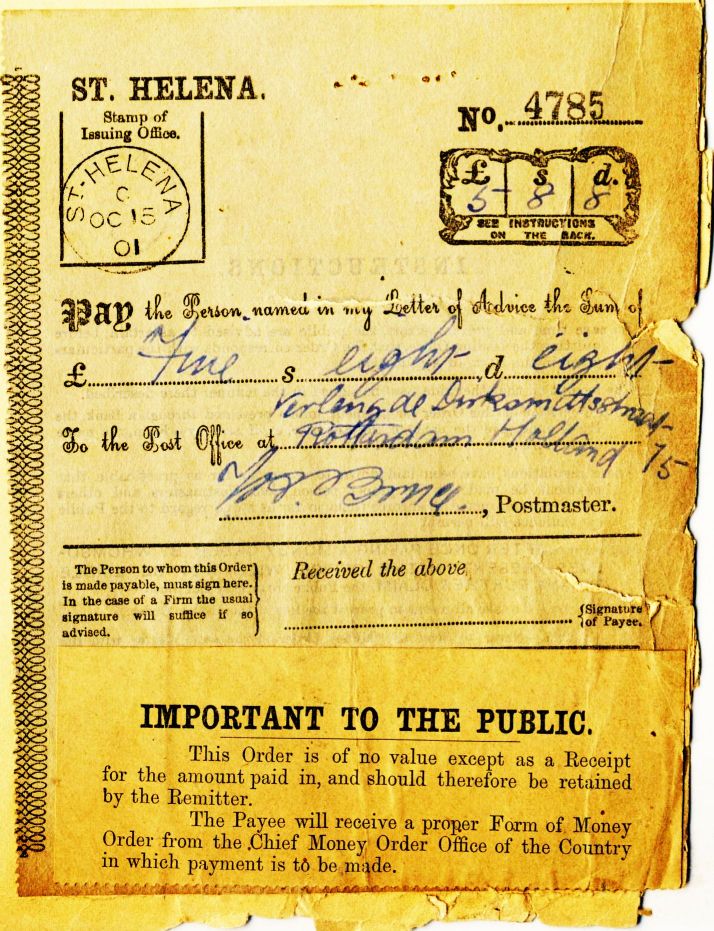 ST. HELENA.
Stamp of
Issuing Office.
ST. HELENA
C
OC 15
01
No. 4785
£ s d.
5 - 8 8
SEE INSTRUCTIONS
ON THE BACK.
INSTRUCTIONS
Pay the Person named in my Letter of Advice the Sum of
£ Five s eight d eight
Verlengde
To the Post Office at Rotterdam Holland 75
, Postmaster.
The Person to whom this Order
is made payable, must sign here.
In the case of a Firm the usual
signature will suffice if so
advised.
Received the above,
Signature
of Payee.
IMPORTANT TO THE PUBLIC.
This Order is of no value except as a Receipt
for the amount paid in, and should therefore be retained
by the Remitter.
The Payee will receive a proper Form of Money
Order from the Chief Money Order Office of the Country
in which payment is to be made.